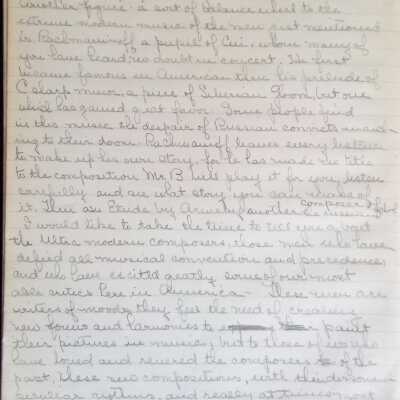 another figure - a sort of balance wheel to the
extreme modern music of the men just mentioned
is Rachmaninoff a pupil of Cui, whom many of
you have heard no doubt in concert, He first
became famous in American thru his prelude of
C sharp minor, a piece of Siberian gloom, but one
which has gained great favor. Some people find
in this music the despair of Russian convicts march-
ing to their doom. Rachmaninoff leaves every listener
to make up his own story for he has made no title
to the composition Mr. B will play it for you, listen
carefully and see what story you can make of
it. Then an Etude by Arensky another composer of
I would like to take the time to tell you about
the Ultra modern composers, those men who have
defied all musical convention and precedences
and who have excited greatly some of our most
able critics here in America - These men are
writers of moods, they feel the need of creating
new forms and harmonies to paint
their pictures in music, but to those of us who
have loved and revered the composers of the
past, these new compositions, with their
peculiar rythms, and really at times most